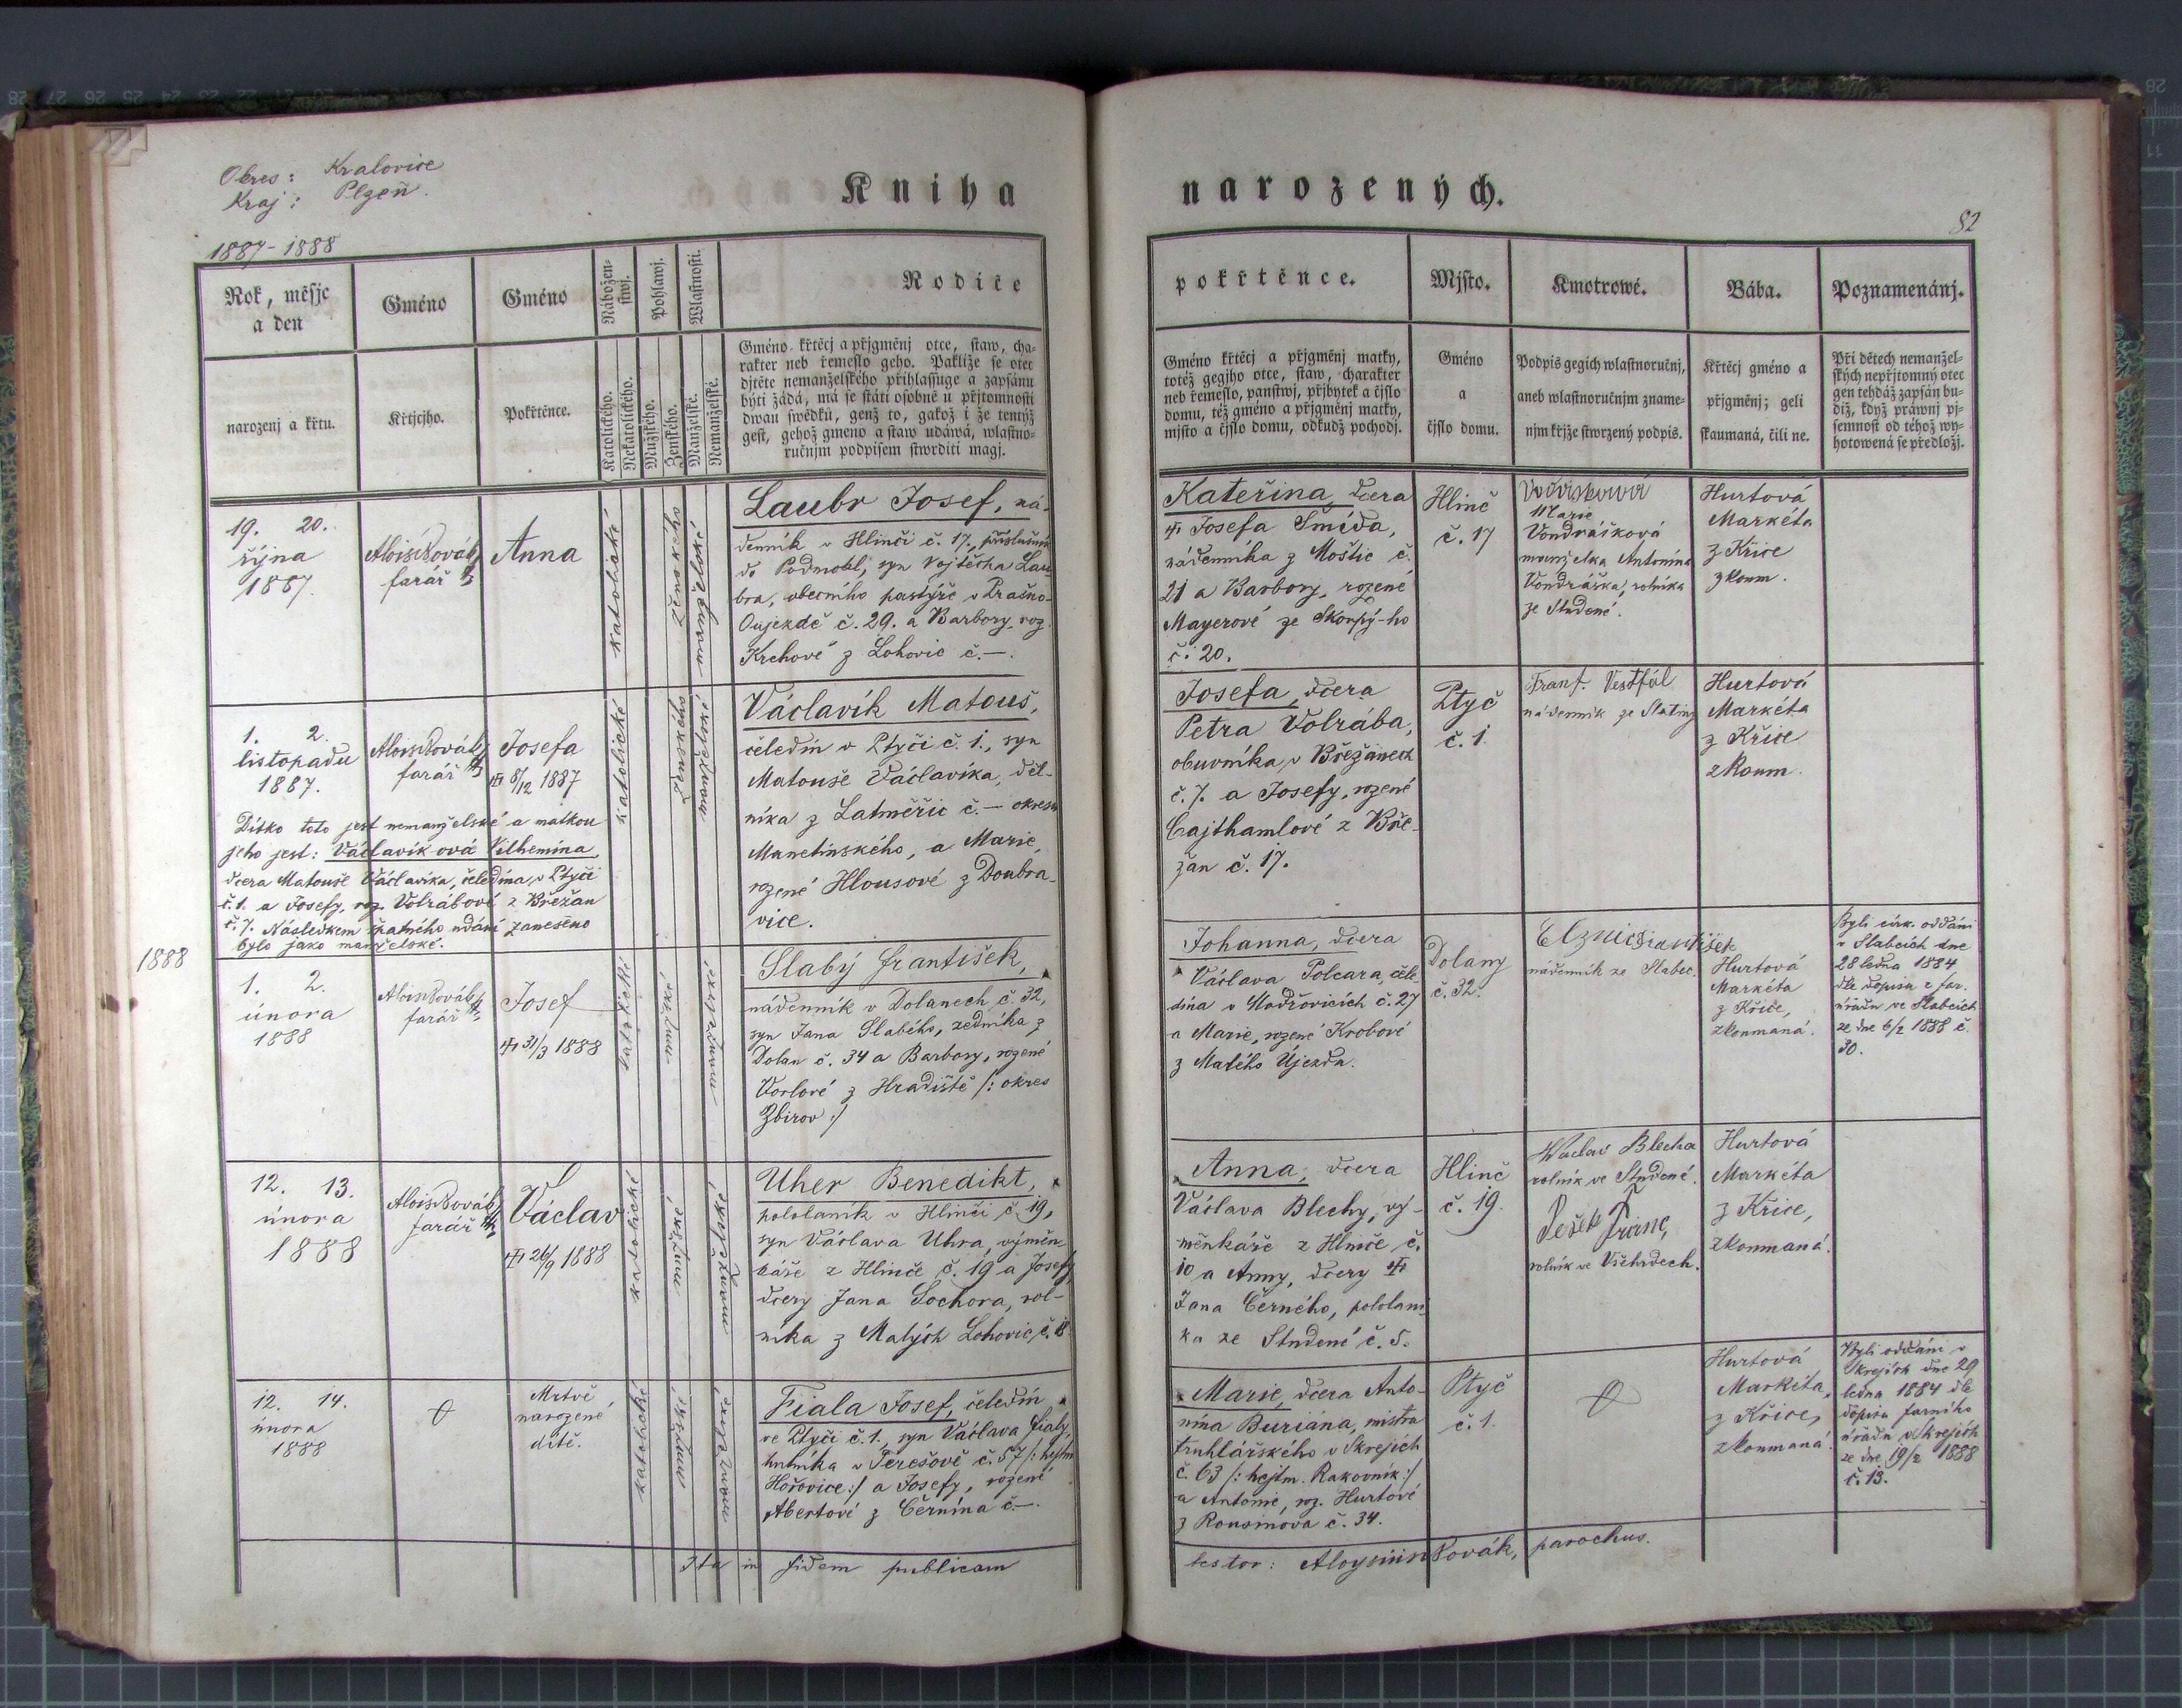 Okres: Kralovice
Kraj: Plzeň.
1887-1888
Kniha narozených.
82
Rok, měsjc
a den
Gméno
Gméno
Nábožen-
stwj.
Pohlawj.
Wlastnosti.
Rodiče
pokřtěnce.
Mjsto.
Kmotrowé.
Bába.
Poznamenánj.
narozenj a křtu.
Křtjcjho.
Pokřtěnce.
Katolického.
Nekatolického.
Mužského.
Ženského.
Manželské.
Nemanželské.
Gméno křtěcj a přjgměnj otce, staw, cha-
rakter neb řemeslo geho. Pakliže se otec
djtěte nemanželského přihlassuge a zapsánu
býti žádá, má se státi osobně u přjtomnosti
dwau swědků, genž to, gakož i že tentýž
gest, gehož gmeno a staw udáwá, wlastno-
ručnjm podpisem stwrditi magj.
Gméno křtěcj a přjgměnj matky,
totéž gegjho otce, staw, charakter
neb řemeslo, panstwj, přjbytek a čjslo
domu, též gméno a přjgměnj matky,
mjsto a čjslo domu, odkudž pochodj.
Gméno
a
čjslo domu.
Podpis gegich wlastnoručnj,
aneb wlastnoručnjm zname-
njm křjže stwrzený podpis.
Křtěcj gméno a
přjgměnj; geli
skaumaná, čili ne.
Při dětech nemanžel-
ských nepřjtomný otec
gen tehdáž zapsán bu-
diž, když práwnj pj-
semnost od téhož wy-
hotowená se předložj.
19. 20.
října
1887.
Alois Kovář
farář
Anna
katolické
ženské
manželské
Laubr Josef, ná-
denník v Hlinči č. 17., příslušník
do Podmokl, syn Vojtěcha Lau-
bra, obecního pastýře v Prašno-
Oujezdě č. 29. a Barbory, roz.
Krchové z Lohovic č.—.
Kateřina, dcera
Josefa Šmída,
nádenníka z Moštic č.
21 a Barbory, rozené
Mayerové ze Skoupý-ho
č. 20.
Hlinč
č. 17
Marie
Vondrášková
manželka Antonína
Vondráška, rolníka
ze Studené.
Hurtová
Markéta
z Křice
zkoum.
1. 2.
listopadu
1887.
Alois Kovář
farář
Josefa
8/12 1887
katolické
ženské
manželské
Dítko toto jest nemanželské a matkou
jeho jest: Václavík-ová Vilhemina
dcera Matouše Václavíka, čeledína v Ptyči
č. 1. a Josefy, roz. Volrábové z Břežan
č. 7. Následkem špatného udání zaneseno
bylo jako manželské.
Václavík Matouš,
čeledín v Ptyči č. 1., syn
Matouše Václavíka, děl-
níka z Latměřic č.— okresu
Manetínského, a Marie,
rozené Hlousové z Doubra-
vice.
Josefa, dcera
Petra Volrába,
obuvníka v Břežanech
č. 7. a Josefy, rozené
Cajthamlové z Bře-
žan č. 17.
Ptyč
č. 1.
Franf. Vestfál
nádenník ze Slatiny
Hurtová
Markéta
z Křice
zkoum.
1888
1. 2.
února
1888
Alois Kovář
farář
Josef
31/3 1888
katolické
mužské
manželské
Slabý František,
nádenník v Dolanech č. 32,
syn Jana Slabého, zedníka z
Dolan č. 34 a Barbory, rozené
Vorlové z Hradiště /: okres
Zbirov :/
Johanna, dcera
Václava Polcara, čele-
dína v Modřovicích č. 27
a Marie, rozené Krobové
z Malého Újezda.
Dolany
č. 32.
nádenník ze Slabec.
Hurtová
Markéta
z Křice,
zkoumaná.
Byli círk. oddáni
v Slabcích dne
28 ledna 1884
dle dopisu z far.
úřadu ve Slabcích
ze dne 6/2 1888 č.
30.
12. 13.
února
1888
Alois Kovář
farář
Václav
26/9 1888
katolické
mužské
manželské
Uher Benedikt,
pololaník v Hlinči č. 19,
syn Václava Uhra, výmin-
káře z Hlinče č. 19 a Josefy,
dcery Jana Sochora, rol-
níka z Malých Lohovic, č. 18
Anna, dcera
Václava Blechy, vý-
měnkáře z Hlinče č.
10 a Anny, dcery
Jana Černého, pololaní-
ka ze Studené č. 5.
Hlinč
č. 19.
Waclav Blecha
rolník ve Studené.
rolník ve Všehrdech.
Hurtová
Markéta
z Křice,
zkoumaná.
12. 14.
února
1888
Mrtvě
narozené
dítě.
katolické
mužské
manželské
Fiala Josef, čeledín
ve Ptyči č. 1., syn Václava Fialy,
hutníka v Terešově č. 57 /: hejtm
Hořovice :/ a Josefy, rozené
Abertové z Černína č.—.
Marie, dcera Anto-
nína Buriána, mistra
truhlářského v Skrejích
č. 63 /: hejtm. Rakovník :/
a Antonie, roz. Hurtové
z Rousínova č. 34.
Ptyč
č. 1.
Hurtová
Markéta,
z Křice,
zkoumaná.
Byli oddáni v
Skrejích dne 29
ledna 1884 dle
dopisu farního
úřadu v Skrejích
ze dne 19/2 1888
č. 13.
Ita in fidem publicam
testor: Aloysius Kovář, parochus.